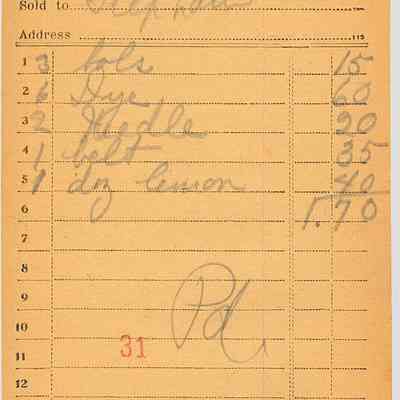 Sold to
Address 115
1 3 bols 15
2 6 Dye 60
3 2 Needle 20
4 1 belt 35
5 1 doz lemon 40
6 1.70
7
8
Pd
9
10
11 31
12